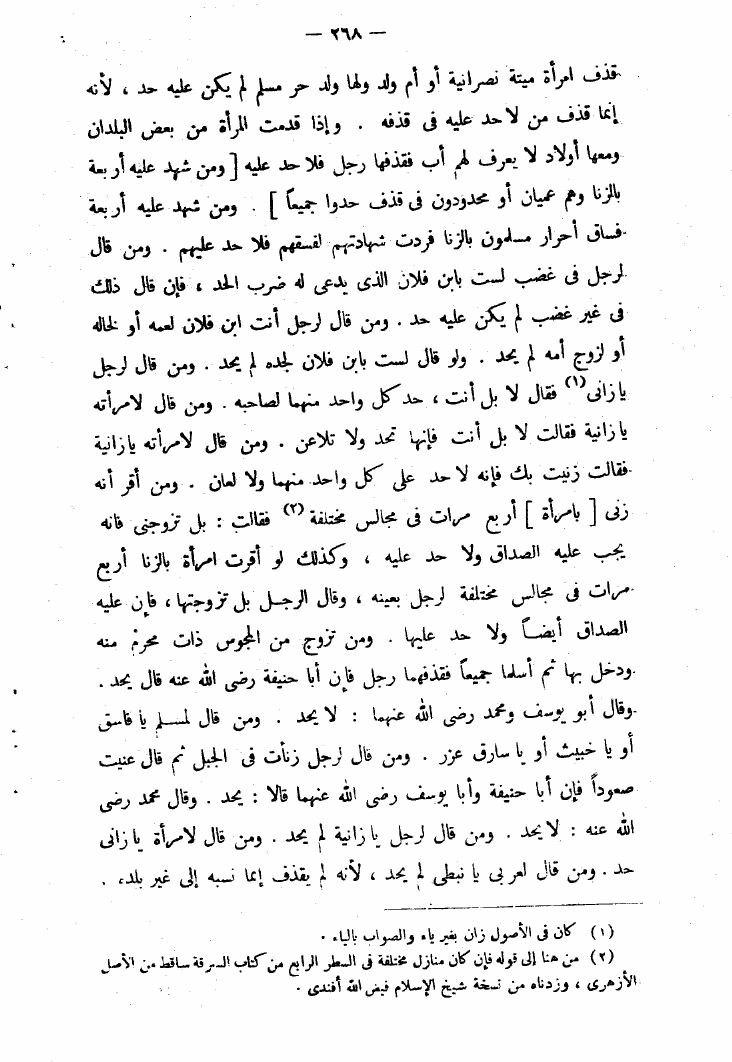 — ٢٦٨ —
قذف امرأة ميتة نصرانية أو أم ولد ولها ولد حر مسلم لم يكن عليه حد ، لأنه
إنما قذف من لا حد عليه فى قذفه . وإذا قدمت المرأة من بعض البلدان
ومعها أولاد لا يعرف لهم أب فقذفها رجل فلا حد عليه [ ومن شهد عليه أربعة
بالزنا وهم عميان أو محدودون فى قذف حدوا جميعاً ] . ومن شهد عليه أربعة
فساق أحرار مسلمون بالزنا فردت شهادتهم لفسقهم فلا حد عليهم . ومن قال
لرجل فى غضب لست بابن فلان الذى يدعى له ضرب الحد ، فإن قال ذلك
فى غير غضب لم يكن عليه حد . ومن قال لرجل أنت ابن فلان لعمه أو لخاله
أو لزوج أمه لم يحد . ولو قال لست بابن فلان لجده لم يحد . ومن قال لرجل
يازانى (١) فقال لا بل أنت ، حد كل واحد منهما لصاحبه . ومن قال لامرأته
يازانية فقالت لا بل أنت فإنها تحد ولا تلاعن . ومن قال لامرأته يازانية
فقالت زنيت بك فإنه لا حد على كل واحد منهما ولا لعان . ومن أقر أنه
زنى [ بامرأة ] أربع مرات فى مجالس مختلفة (٢) فقالت : بل تزوجنى فانه
يجب عليه الصداق ولا حد عليه ، وكذلك لو أقرت امرأة بالزنا أربع
مرات فى مجالس مختلفة لرجل بعينه ، وقال الرجل بل تزوجتها ، فإن عليه
الصداق أيضاً ولا حد عليها . ومن تزوج من المجوس ذات محرم منه
ودخل بها ثم أسلما جميعاً فقذفهما رجل فإن أبا حنيفة رضى الله عنه قال يحد .
وقال أبو يوسف ومحمد رضى الله عنهما : لا يحد . ومن قال لمسلم يا فاسق
أو يا خبيث أو يا سارق عزر . ومن قال لرجل زنأت فى الجبل ثم قال عنيت
صعوداً فإن أبا حنيفة وأبا يوسف رضى الله عنهما قالا : يحد . وقال محمد رضى
الله عنه : لا يحد . ومن قال لرجل يازانية لم يحد . ومن قال لامرأة يازانى
حد . ومن قال لعربى يا نبطى لم يحد ، لأنه لم يقذف إنما نسبه إلى غير بلده .
(١) كان فى الأصول زان بغير ياء والصواب بالياء .
(٢) من هنا إلى قوله فإن كان منازل مختلفة فى السطر الرابع من كتاب السرقة ساقط من الأصل
الأزهرى ، وزدناه من نسخة شيخ الإسلام فيض الله أفندى .